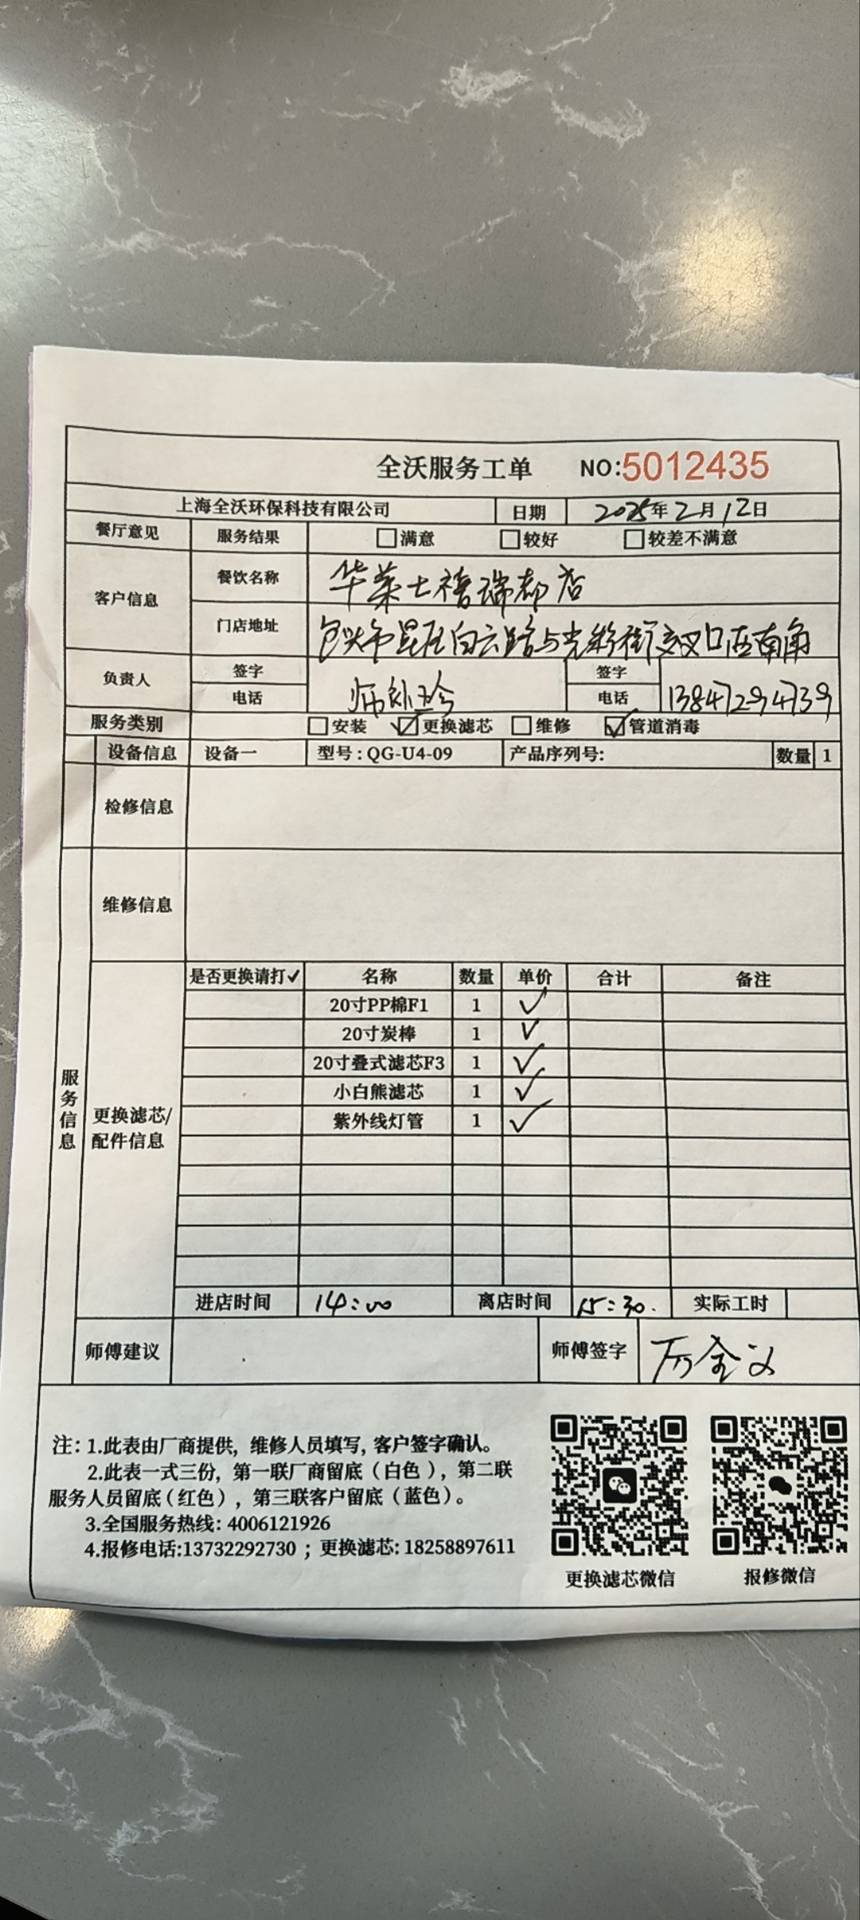 全沃服务工单 NO:5012435
上海全沃环保科技有限公司 日期 2025年2月12日
餐厅意见 服务结果 满意 较好 较差不满意
客户信息 餐饮名称 华莱士禧瑞都店
门店地址 包头市昆区白云路与光彩街交叉口西南角
负责人 签字 签字
电话 电话 13847294739
服务类别 安装 更换滤芯 维修 管道消毒
设备信息 设备一 型号:QG-U4-09 产品序列号: 数量 1
检修信息
维修信息
服务信息
更换滤芯/配件信息
是否更换请打✓ 名称 数量 单价 合计 备注
20寸PP棉F1 1 ✓
20寸炭棒 1 ✓
20寸叠式滤芯F3 1 ✓
小白熊滤芯 1 ✓
紫外线灯管 1 ✓
进店时间 14:00 离店时间 15:30. 实际工时
师傅建议 师傅签字
注: 1.此表由厂商提供, 维修人员填写, 客户签字确认。
2.此表一式三份, 第一联厂商留底(白色), 第二联
服务人员留底(红色), 第三联客户留底(蓝色)。
3.全国服务热线: 4006121926
4.报修电话:13732292730 ; 更换滤芯: 18258897611
更换滤芯微信 报修微信